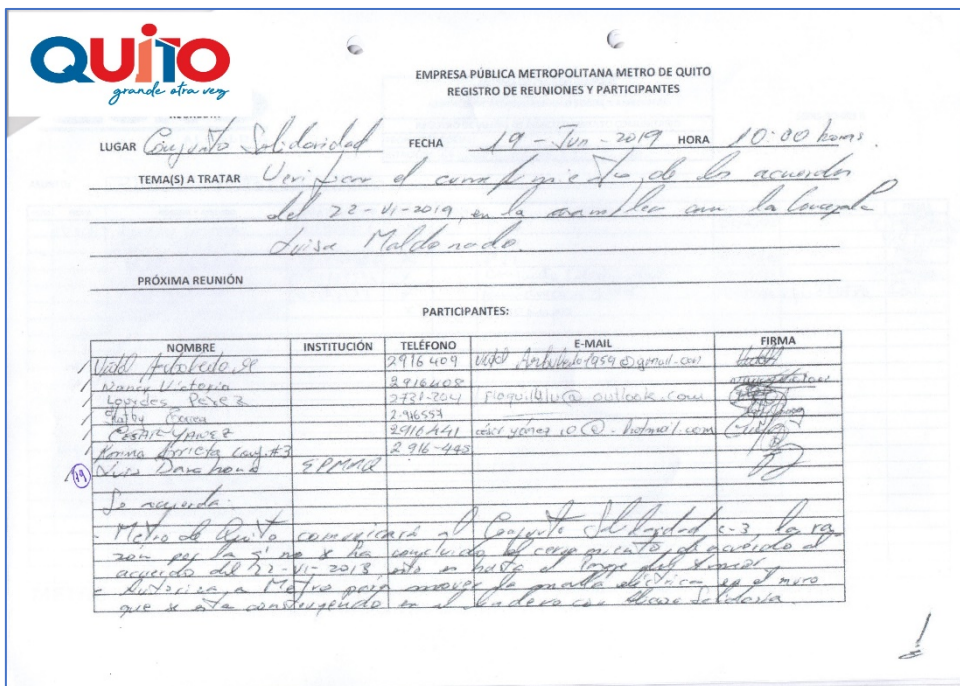 QUITO
grande otra vez
EMPRESA PÚBLICA METROPOLITANA METRO DE QUITO
REGISTRO DE REUNIONES Y PARTICIPANTES
LUGAR Conjunto Solidaridad FECHA 19 - Jun - 2019 HORA 10:00 horas.
TEMA(S) A TRATAR Verificar el cumplimiento, de los acuerdos
del 22-VI-2019, en la asamblea con la Concejala
Luisa Maldonado.
PRÓXIMA REUNIÓN
PARTICIPANTES:
NOMBRE INSTITUCIÓN TELÉFONO E-MAIL FIRMA
2916409
Nancy Victoria 2916408
Lourdes Perez outlook.com
2-916557
CESAR YANEZ 2916441 césar yánez 10@-hotmail.com
Arrieta Conj. #3 2 916-445
19 Luis EPMMQ
Se acuerda:
- Metro de Quito comunicará al Conjunto Solidaridad C-3 la ra
zón por la q' no se ha concluido el cerramiento, de acuerdo al
acuerdo del 22-VI-2018, esto es hasta el
- Autoriza a Metro para mover la malla eléctrica en el muro
que se esta construyendo en el lindero con Alianza Solidaria.